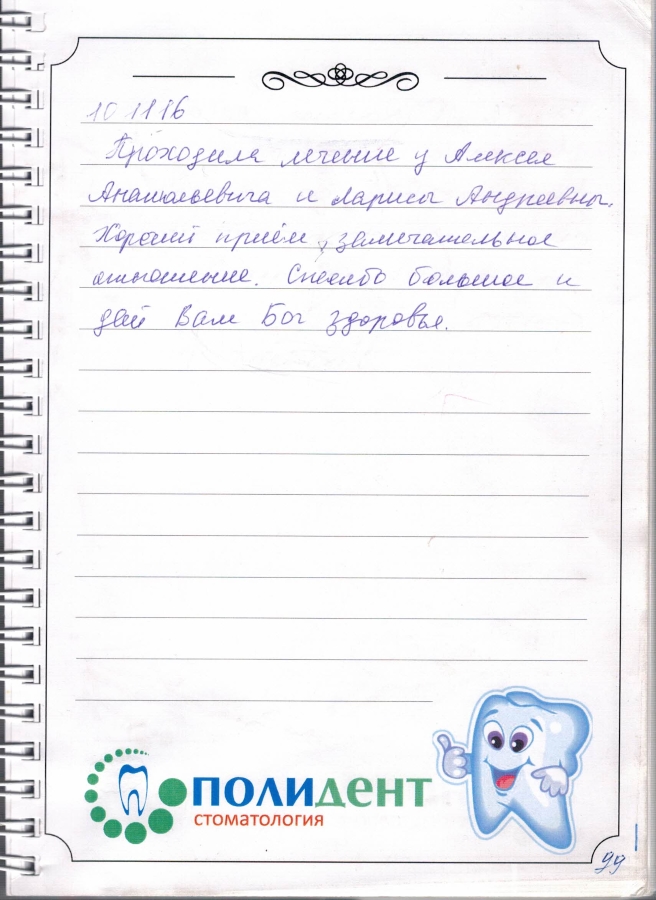 10 11 16
Проходила лечение у Алексея
Анатольевича и Ларисы Андреевны.
Хороший приём, замечательное
отношение. Спасибо большое и
дай Вам Бог здоровья.
ПОЛИДЕНТ
СТОМАТОЛОГИЯ
99